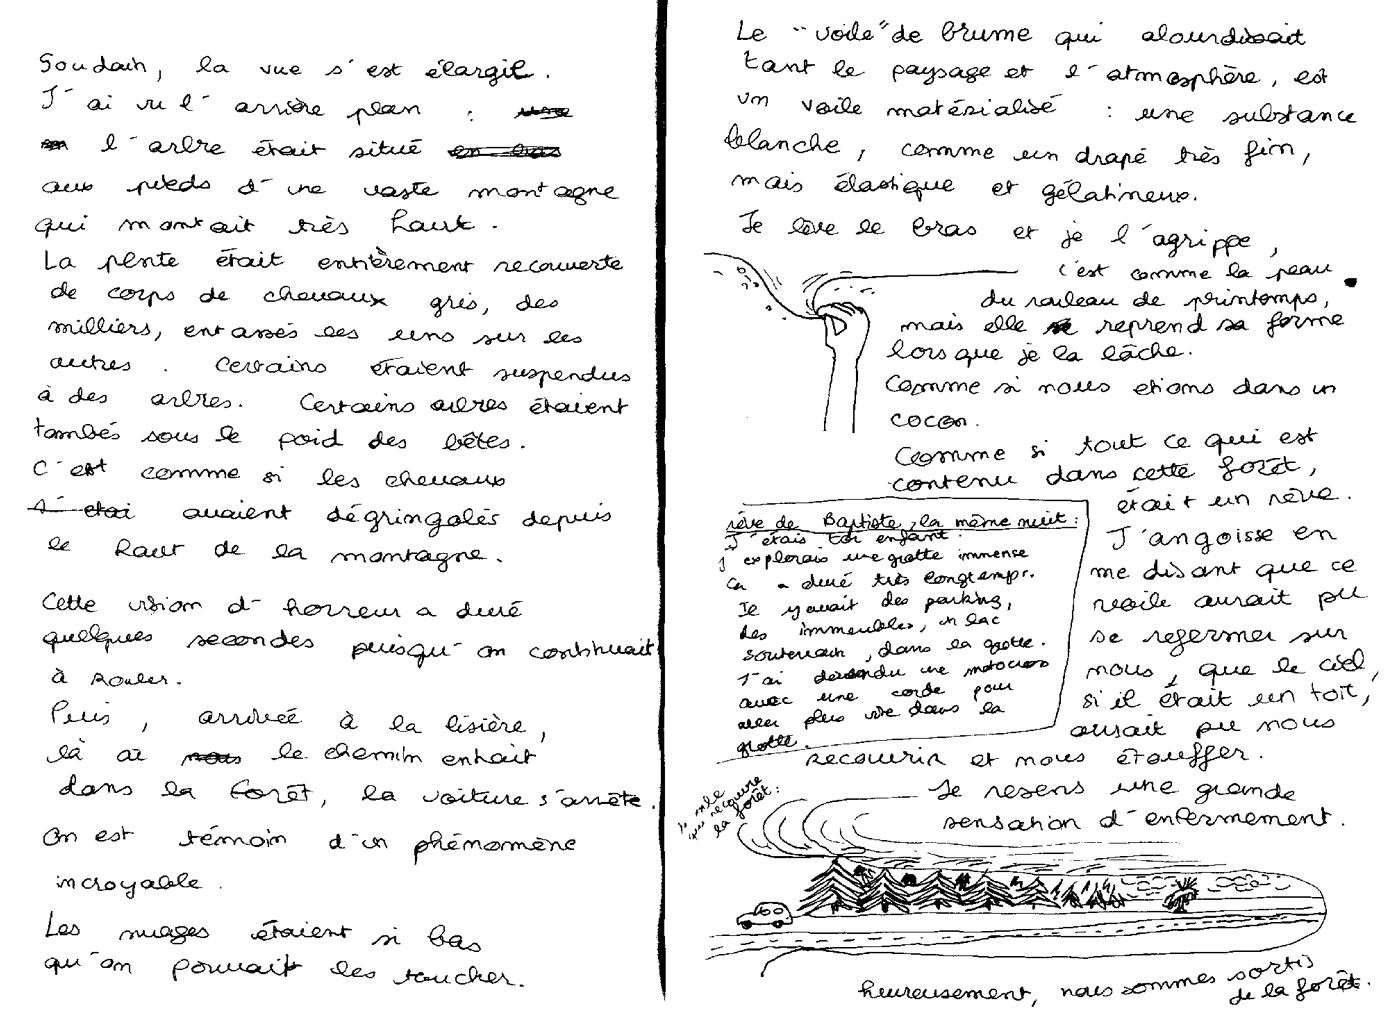 Soudain, la vue s'est élargie.
J'ai vu l'arrière plan :
l'arbre était situé
aux pieds d'une vaste montagne
qui montait très haut.
La pente était entièrement recouverte
de corps de chevaux gris, des
milliers, entassés les uns sur les
autres. Certains étaient suspendus
à des arbres. Certains arbres étaient
tombés sous le poid des bêtes.
C'est comme si les chevaux
avaient dégringolés depuis
le haut de la montagne.
Cette vision d'horreur a duré
quelques secondes puisqu'on continuait
à rouler.
Puis, arrivée à la lisière,
là où le chemin entrait
dans la forêt, la voiture s'arrête.
On est témoin d'un phénomène
incroyable.
Les nuages étaient si bas
qu'on pouvait les toucher.
Le "voile" de brume qui alourdissait
tant le paysage et l'atmosphère, est
un voile matérialisé : une substance
blanche, comme un drapé très fin,
mais élastique et gélatineux.
Je lève le bras et je l'agrippe,
c'est comme la peau
du rouleau de printemps,
mais elle reprend sa forme
lorsque je la lâche.
Comme si nous etions dans un
cocon.
Comme si tout ce qui est
contenu dans cette forêt,
était un rêve.
J'angoisse en
me disant que ce
voile aurait pu
se refermer sur
nous, que le ciel,
si il était un toit,
aurait pu nous
recouvrir et nous étouffer.
Je resens une grande
sensation d'enfermement.
rêve de Baptiste, la même nuit :
J'étais toi enfant.
J'explorais une grotte immense
Ca a duré très longtemps.
Il y avait des parking,
des immeubles, un lac
souterrain, dans la grotte.
J'ai descendu une motocross
avec une corde pour
aller plus vite dans la
grotte.
qui recouvre
la forêt :
heureusement, nous sommes sortis
de la forêt.